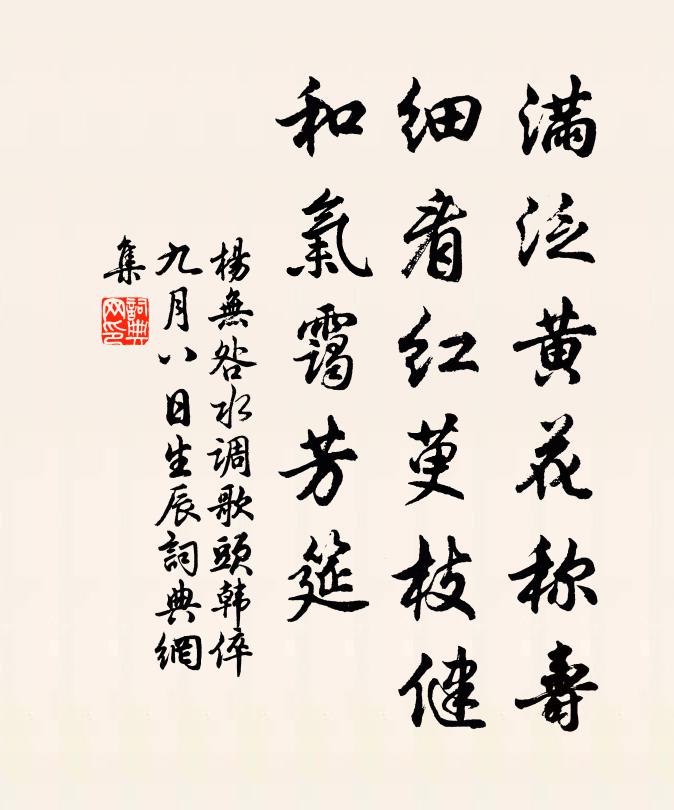 滿泛黄花称壽
细看红萸枝健
和氣靄芳筵
楊無咎水调歌頭韩倅
九月八日生辰詞典網
集
詞典
网印